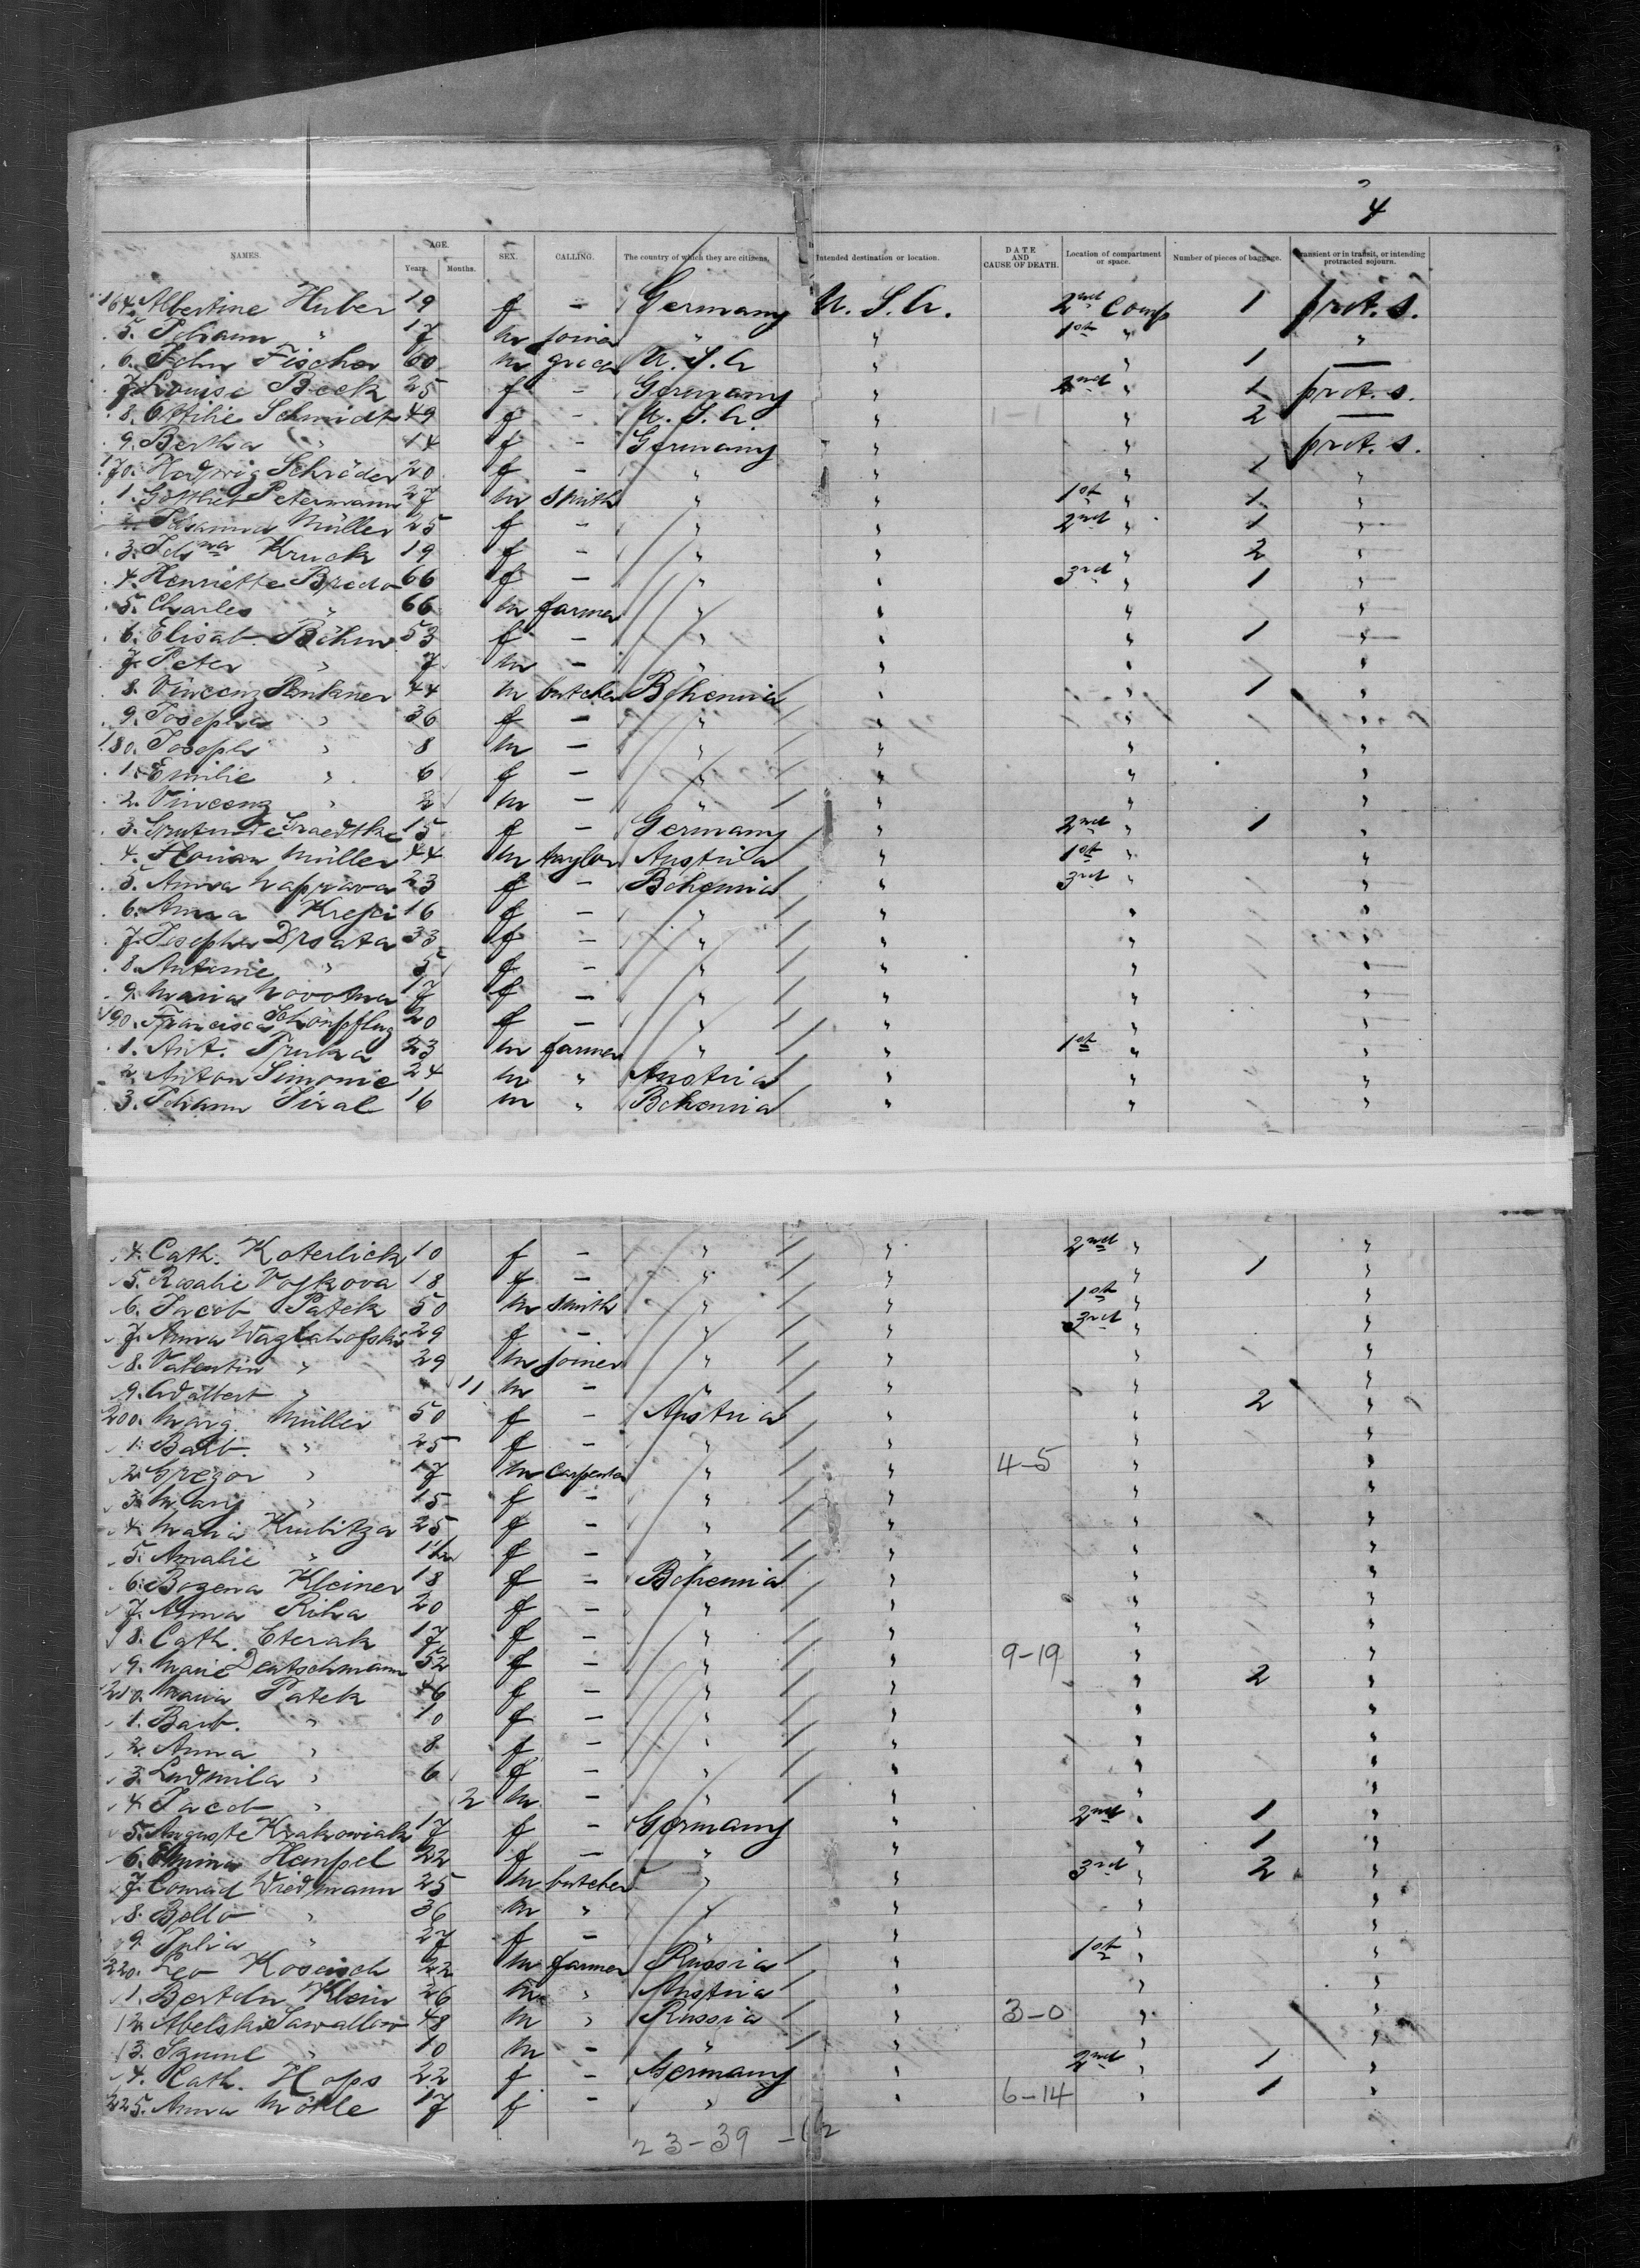 4
NAMES. AGE. Years. Months. SEX. CALLING. The country of which they are citizens. Intended destination or location. DATE AND CAUSE OF DEATH. Location of compartment or space. Number of pieces of baggage. Transient or in transit, or intending protracted sojourn.
164. Albertine Huber 19 f — Germany U. S. A. 2nd Comp 1 prot. s.
5. Johann " 17 m joiner " " 1st " "
6. John Fischer 60 m U. S. A " " 1 —
7. Louise Beck 25 f — Germany " 2nd " 1 prot. s.
8. Ottilie Schmidt 49 f — U. S. A. " " 2 —
9. Bertha " 14 f — Germany " " prot. s.
170. Hedwig Schröder 20 f — " " " 1 "
1. Gottlieb Petermann 27 m smith " " 1st " 1 "
Müller 25 f — " " 2nd " 1 "
3. Kruck 19 f — " " " 2 "
4. Henriette Bredo 66 f — " " 3rd " 1 "
5. Charles " 66 m farmer " " " "
6. Elisab. Böhm 53 f — " " " 1 "
7. Peter " 7 m — " " " "
8. Vincenz 44 m butcher Bohemia " " 1 "
9. Josepha " 36 f — " " " "
180. Joseph " 8 m — " " " "
1. Emilie " 6 f — " " " "
2. Vincenz " 2 m — " " " "
3. 15 f — Germany " 2nd " 1 "
4. Florian Müller 44 m taylor Austria " 1st " "
5. Anna Naprava 23 f — Bohemia " 3rd " "
6. Anna Krejci 16 f — " " " "
7. Josepha Drsata 33 f — " " " "
8. Antonie " 5 f — " " " "
9. Maria Novotna 17 f — " " " "
190. Francisca Schönpflug 20 f — " " " "
1. Ant. Truka 23 m farmer " " 1st " "
2. Anton Simonic 24 m " Austria " " "
3. Johann Siral 16 m " Bohemia " " "
4. Cath. Koterlick 10 f — " " 2nd " "
5. Rosalie Vojkova 18 f — " " " 1 "
6. Jacob Patek 50 m smith " " 1st " "
7. Anna 29 f — " " 3rd " "
8. Valentin " 29 m joiner " " " "
9. Adalbert " 11 m — " " " 2 "
200. Marg. Müller 50 f — Austria " " "
1. Barb. " 25 f — " " " "
2. Gregor " 17 m carpenter " " 4-5 " "
3. Mary " 15 f — " " " "
4. Maria Krubitza 25 f — " " " "
5. Amalie " f — " " " "
6. Bozena Kleiner 18 f — Bohemia " " "
7. Anna Riha 20 f — " " " "
8. Cath. Cterak 17 f — " " " "
9. Marie Deutschmann 52 f — " " 9-19 " 2 "
210. Maria Patek 46 f — " " " "
1. Barb. " 10 f — " " " "
2. Anna " 8 f — " " " "
3. Ludmila " 6 f — " " " "
4. Jacob " 2 m — " " " "
5. Auguste Krakowiak 17 f — Germany " 2nd " 1 "
6. Hempel 22 f — " " " 1 "
7. Conrad Wiedmann 25 m butcher " " 3rd " 2 "
8. " 36 m " " " " "
9. Julia " 27 f — " " " "
220. Leo Koscisch 22 m farmer Russia " 1st " "
1. Klein 26 m " Austria " " "
2. 48 m " Russia " 3-0 " "
3. " 10 m — " " " "
4. Cath. Hops 22 f — Germany " 2nd " 1 "
225. Anna Mökle 17 f — " " 6-14 " 1 "
23-39